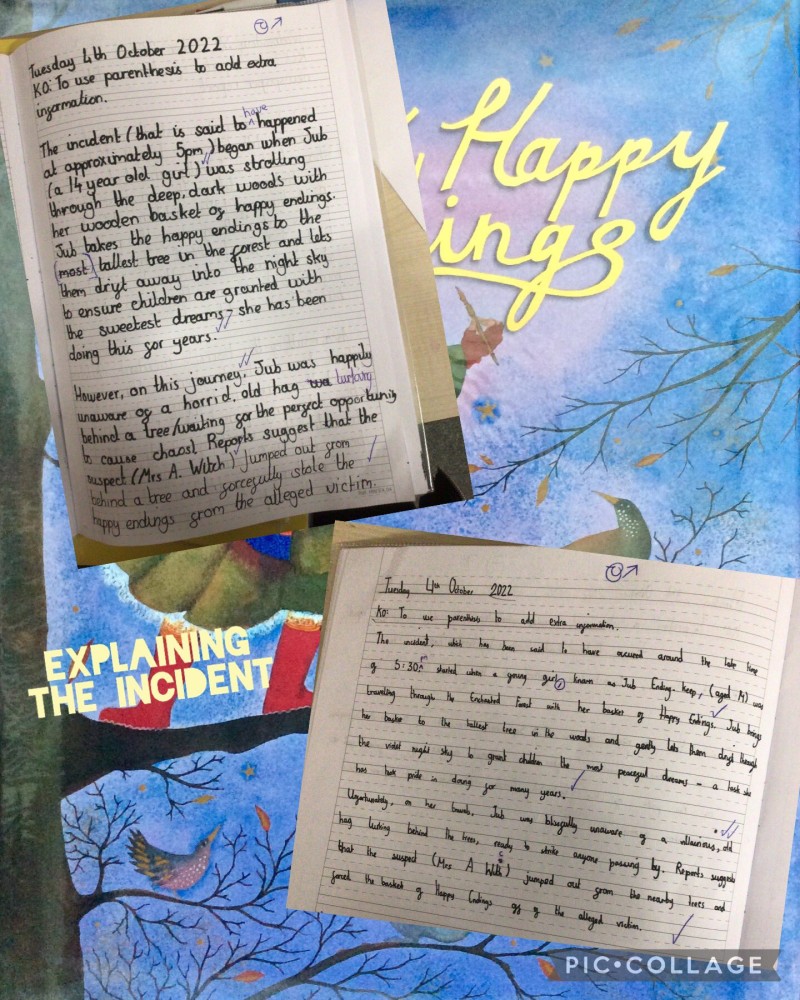 Happy
ings
Tuesday 4th October 2022
KO: To use parenthesis to add extra
information.
The incident (that is said to have happened
at approximately 5pm) began when Jub
(a 14 year old girl) was strolling
through the deep, dark woods with
her wooden basket of happy endings.
Jub takes the happy endings to the
(most) tallest tree in the forest and lets
them drift away into the night sky
to ensure children are granted with
the sweetest dreams; she has been
doing this for years.
However, on this journey, Jub was happily
unaware of a horrid, old hag wa lurking
behind a tree/waiting for the perfect opportunity
to cause chaos! Reports suggest that the
suspect (Mrs A. Witch) jumped out from
behind a tree and forcefully stole the
happy endings from the alleged victim.
EXPLAINING
THE INCIDENT
Tuesday 4th October 2022
KO: To use parenthesis to add extra information.
The incident, which has been said to have occured around the late time
of 5:30pm started when a young girl, known as Jub Ending-keep, (aged 14) was
travelling through the Enchanted Forest with her basket of Happy Endings. Jub brings
her basket to the tallest tree in the woods and gently lets them drift through
the violet night sky to grant children the most peaceful dreams - a task she
has took pride in doing for many years.
Unfortunately, on her travels, Jub was blissfully unaware of a villainous, old
hag lurking behind the trees, ready to strike anyone passing by. Reports suggests
that the suspect (Mrs A Witch) jumped out from the nearby trees and
forced the basket of Happy Endings off of the alleged victim.
PIC•COLLAGE